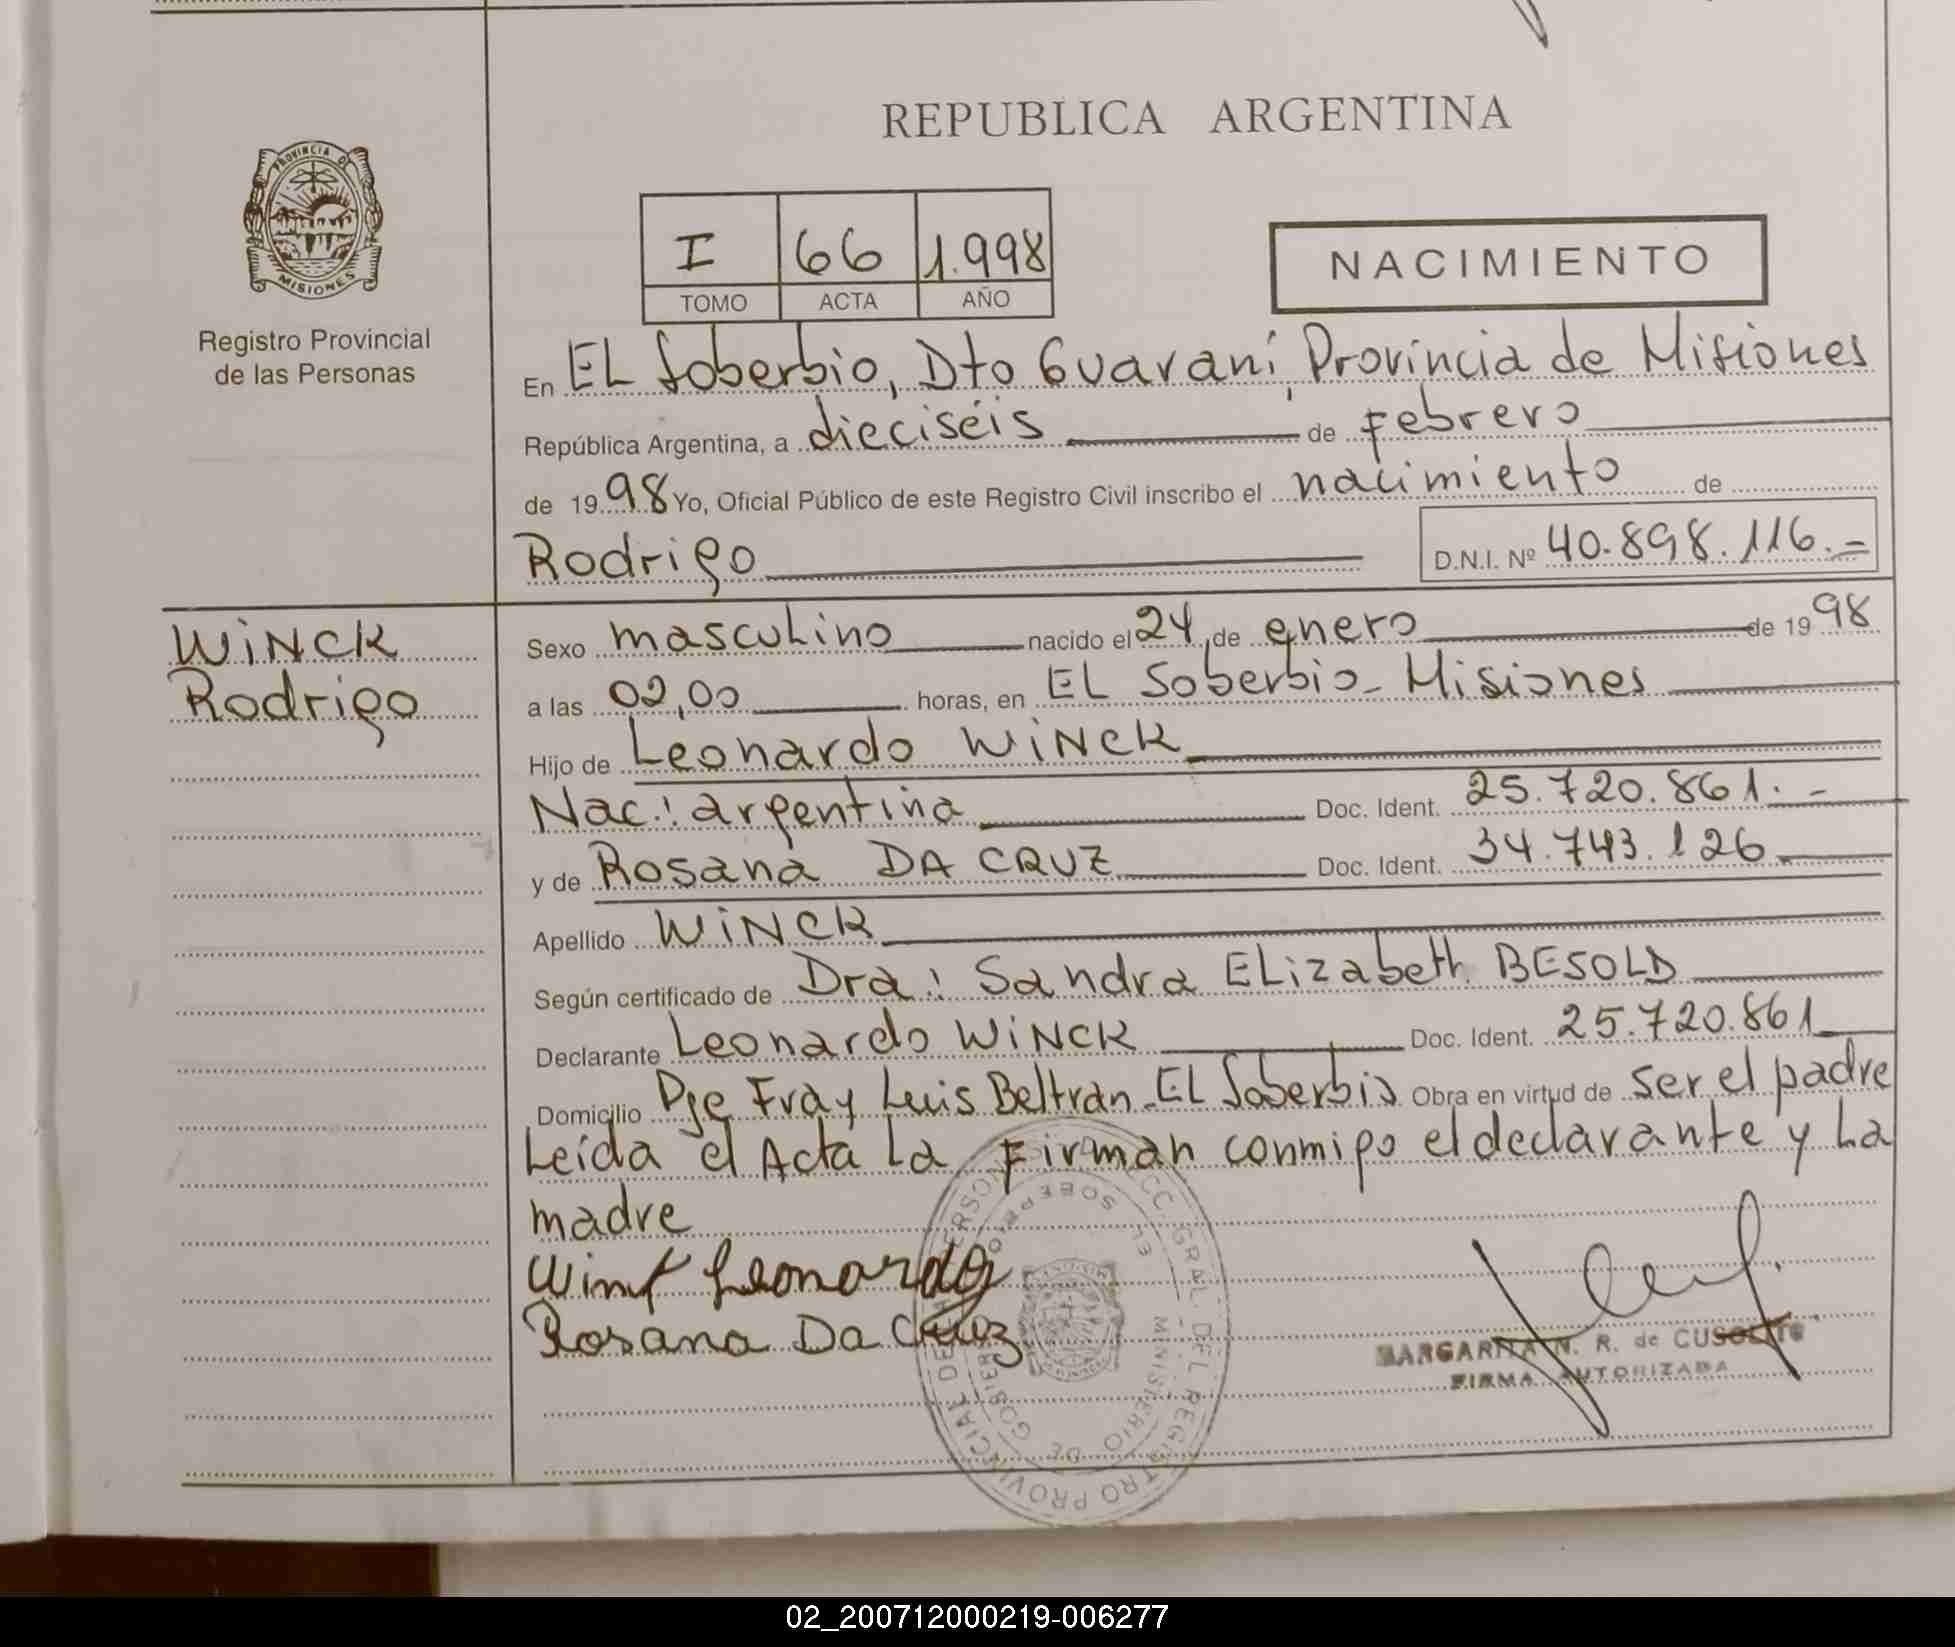 REPUBLICA ARGENTINA
PROVINCIA DE
MISIONES
Registro Provincial
de las Personas
I 66 1.998
TOMO ACTA AÑO
NACIMIENTO
En EL Soberbio, Dto Guaraní, Provincia de Misiones
República Argentina, a dieciséis de Febrero
de 1998 Yo, Oficial Público de este Registro Civil inscribo el nacimiento de
Rodrigo D.N.I. Nº 40.898.116.-
WiNCK
Rodrigo
Sexo masculino nacido el 24 de enero de 1998
a las 02,00 horas, en EL Soberbio - Misiones
Hijo de Leonardo WiNCK
Nac: argentina Doc. Ident. 25.720.861.-
y de Rosana DA CRUZ Doc. Ident. 34.743.126
Apellido WiNCK
Según certificado de Dra: Sandra ELizabeth BESOLD
Declarante Leonardo WiNCK Doc. Ident. 25.720.861
Domicilio Pje Fray Luis Beltran - EL Soberbio Obra en virtud de ser el padre
Leída el Acta La Firman conmigo el declarante y La
madre
Leonardo
Rosana Da Cruz
MARGARITA N. R. de
FIRMA AUTORIZADA
DEL REGISTRO PROVINCIAL DE
MINISTERIO DE
02_200712000219-006277